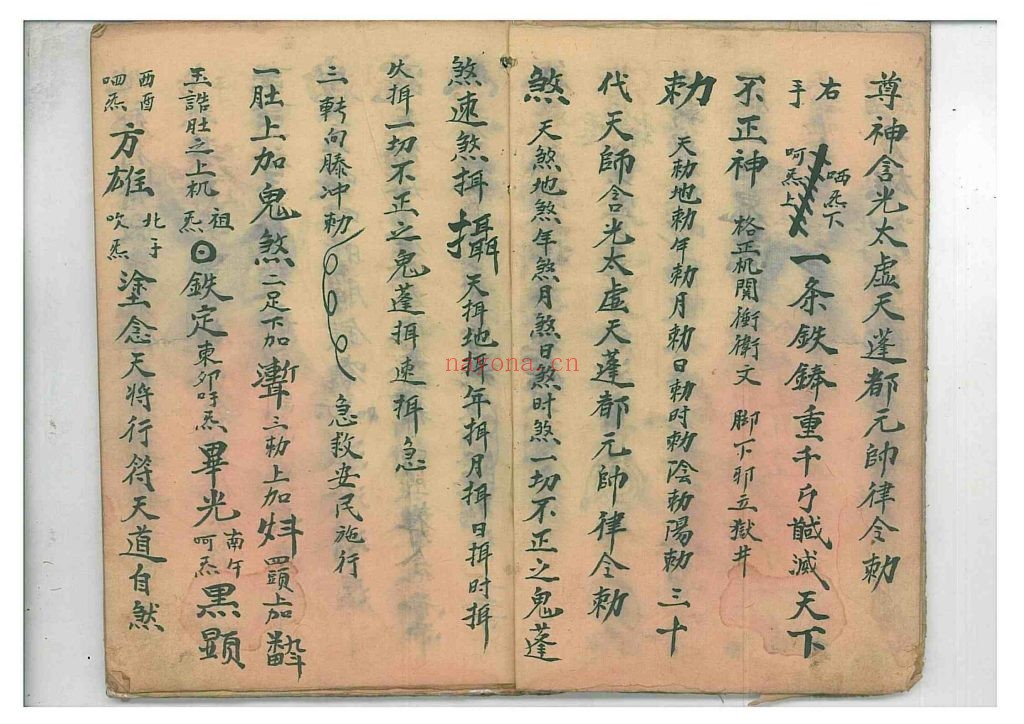 尊神含光太虚天蓬都元帥律令勅
右手 哂炁下 呵炁上 一条鉄鋒重千斤馘滅天下
不正神 格正机関衝衛文 脚下邪立獄井
勅 天勅地勅年勅月勅日勅时勅陰勅陽勅三十
代天師含光太虚天蓬都元帥律令勅
煞 天煞地煞年煞月煞日煞时煞一切不正之鬼蓬
煞速煞揖 攝 天揖地揖年揖月揖日揖时揖
揖一切不正之鬼蓬揖速揖急
三轉向膝冲勅 急救安民施行
一肚上加鬼煞二足下加 三勅上加 四頭上加
玉誥肚之上机 祖炁 鉄定 東卯吁炁 畢光 南午呵炁 黑顕
西酉哂炁 方雄 北子吹炁 塗念天将行符天道自然
nayona.cn